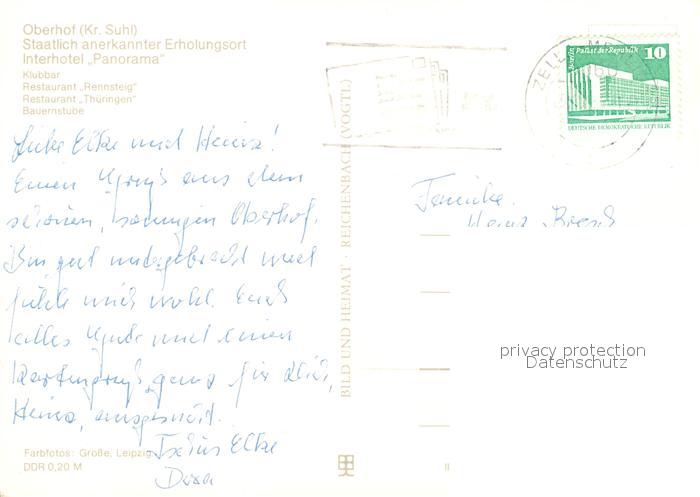 Oberhof (Kr. Suhl)
Staatlich anerkannter Erholungsort
Interhotel „Panorama"
Klubbar
Restaurant „Rennsteig"
Restaurant „Thüringen"
Bauernstube
Liebe Elke und Heinz!
Einen Gruß aus dem
schönen, sonnigen Oberhof.
Bin gut untergebracht und
fühle mich wohl. Euch
alles Gute und einen
Kartengruß, ganz für Dich,
Heinz, ausgesucht.
Tschüs Elke
Farbfotos: Größe, Leipzig
DDR 0,20 M
BILD UND HEIMAT · REICHENBACH (VOGTL)
II
Berlin Palast der Republik
10
DEUTSCHE DEMOKRATISCHE REPUBLIK
ZELLA-
Familie
Heinz
privacy protection
Datenschutz